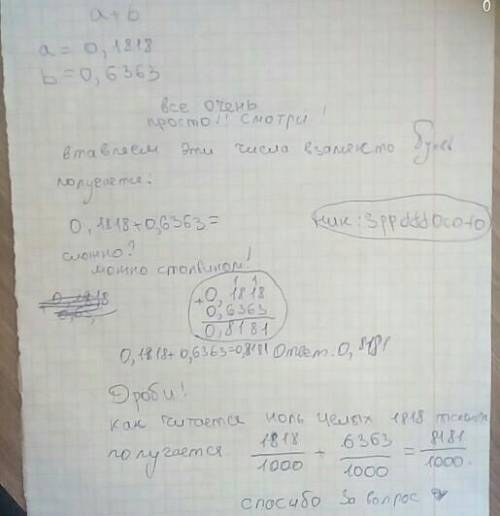 a+b
a = 0,1818
b = 0,6363
все очень
просто!! смотри!
втавляем эти числа взаместо букв
получается:
0,1818+0,6363=
Ник: 3ppddd0co+o
сложно?
можно столбиком!
+0,1818
0,6363
0,8181
0,1818+0,6363=0,8181 Ответ. 0,8181
Дроби!
как читается ноль целых 1818
получается 1818/1000 + 6363/1000 = 8181/1000.
спосибо за вопрос